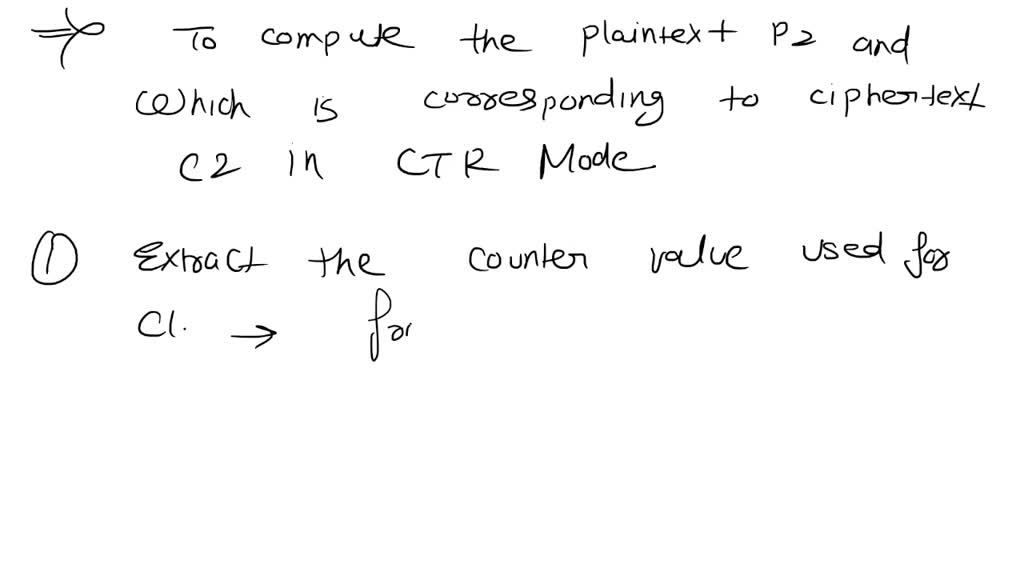 To compute the plaintext P2 and
which is corresponding to ciphertext
C2 in CTR Mode
① Extract the counter value used for
C1. → for